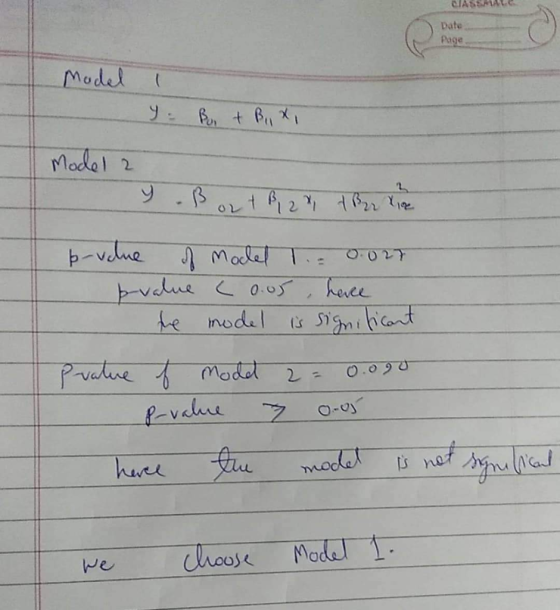 CLASSMATE
Date
Page
Model 1
y = β₀₁ + β₁₁ x₁
Model 2
y = β₀₂ + β₁₂ x₁ + β₂₂ x₁²
p-value of Model 1 = 0.027
p-value < 0.05, hence
the model is significant
P-value of Model 2 = 0.090
p-value > 0.05
hence the model is not significant
we choose Model 1.